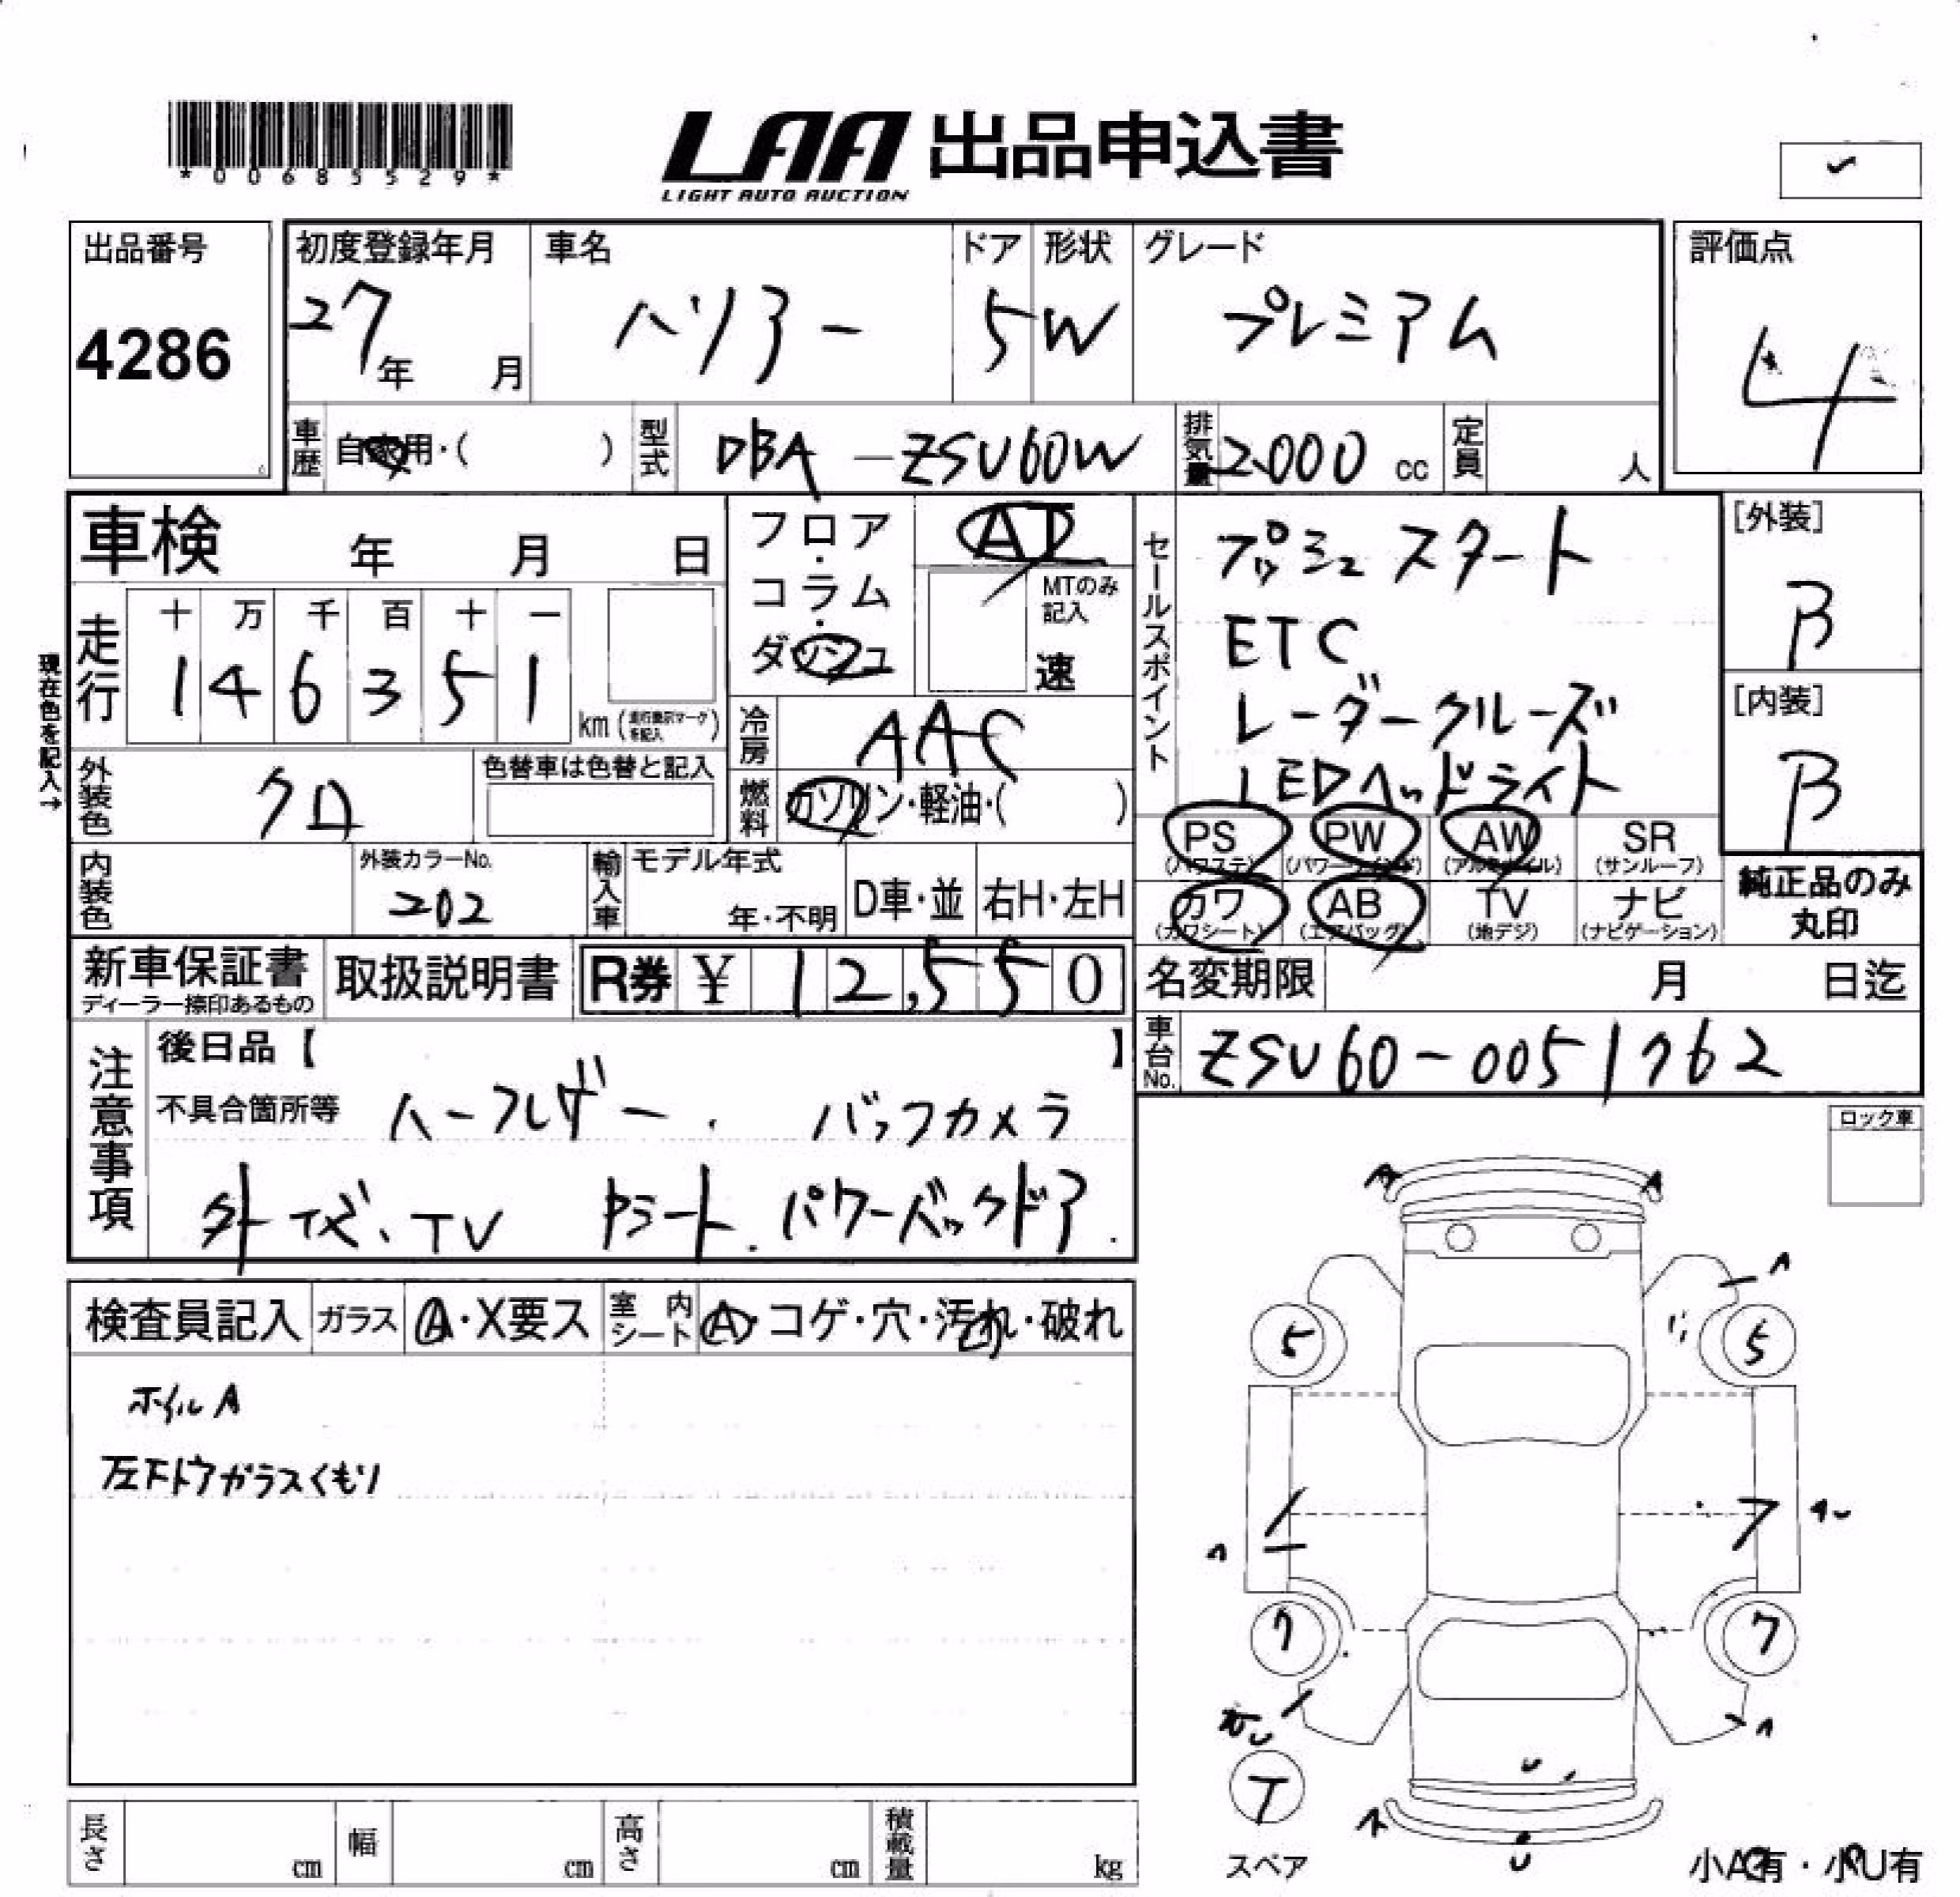 *00685529*
LAA 出品申込書
LIGHT AUTO AUCTION
出品番号
4286
初度登録年月
27年 月
車名
ハリアー
ドア
5
形状
W
グレード
プレミアム
評価点
4
車歴 自家用・( )
型式 DBA-ZSU60W
排気量 2000 cc
定員 人
車検 年 月 日
フロア・コラム・ダッシュ
AT
MTのみ記入
速
セールスポイント
プッシュスタート
ETC
レーダークルーズ
LEDヘッドライト
[外装]
B
[内装]
B
現在色を記入→
走行
十 万 千 百 十 一
1 4 6 3 5 1
km (走行表示マークを記入)
冷房 AAC
外装色 クロ
色替車は色替と記入
燃料 ガソリン・軽油・( )
PS (パワステ)
PW (パワーウィンド)
AW (アルミホイル)
SR (サンルーフ)
カワ (カワシート)
AB (エアバッグ)
TV (地デジ)
ナビ (ナビゲーション)
純正品のみ
丸印
内装色
外装カラーNo.
202
輸入車
モデル年式
年・不明
D車・並
右H・左H
新車保証書
ディーラー捺印あるもの
取扱説明書
R券 ¥ 12,550
名変期限 月 日迄
車台No. ZSU60-0051762
注意事項
後日品【 】
不具合箇所等 ハーフレザー. バックカメラ
外ナビ、TV Pシート. パワーバックドア.
ロック車
検査員記入
ガラス A・X要ス
室内シート A・コゲ・穴・汚れ・破れ
ホイルA
左ドアガラスくもり
A A
5 5
7 7
T
スペア
小A有・小U有
長さ cm
幅 cm
高さ cm
積載量 kg